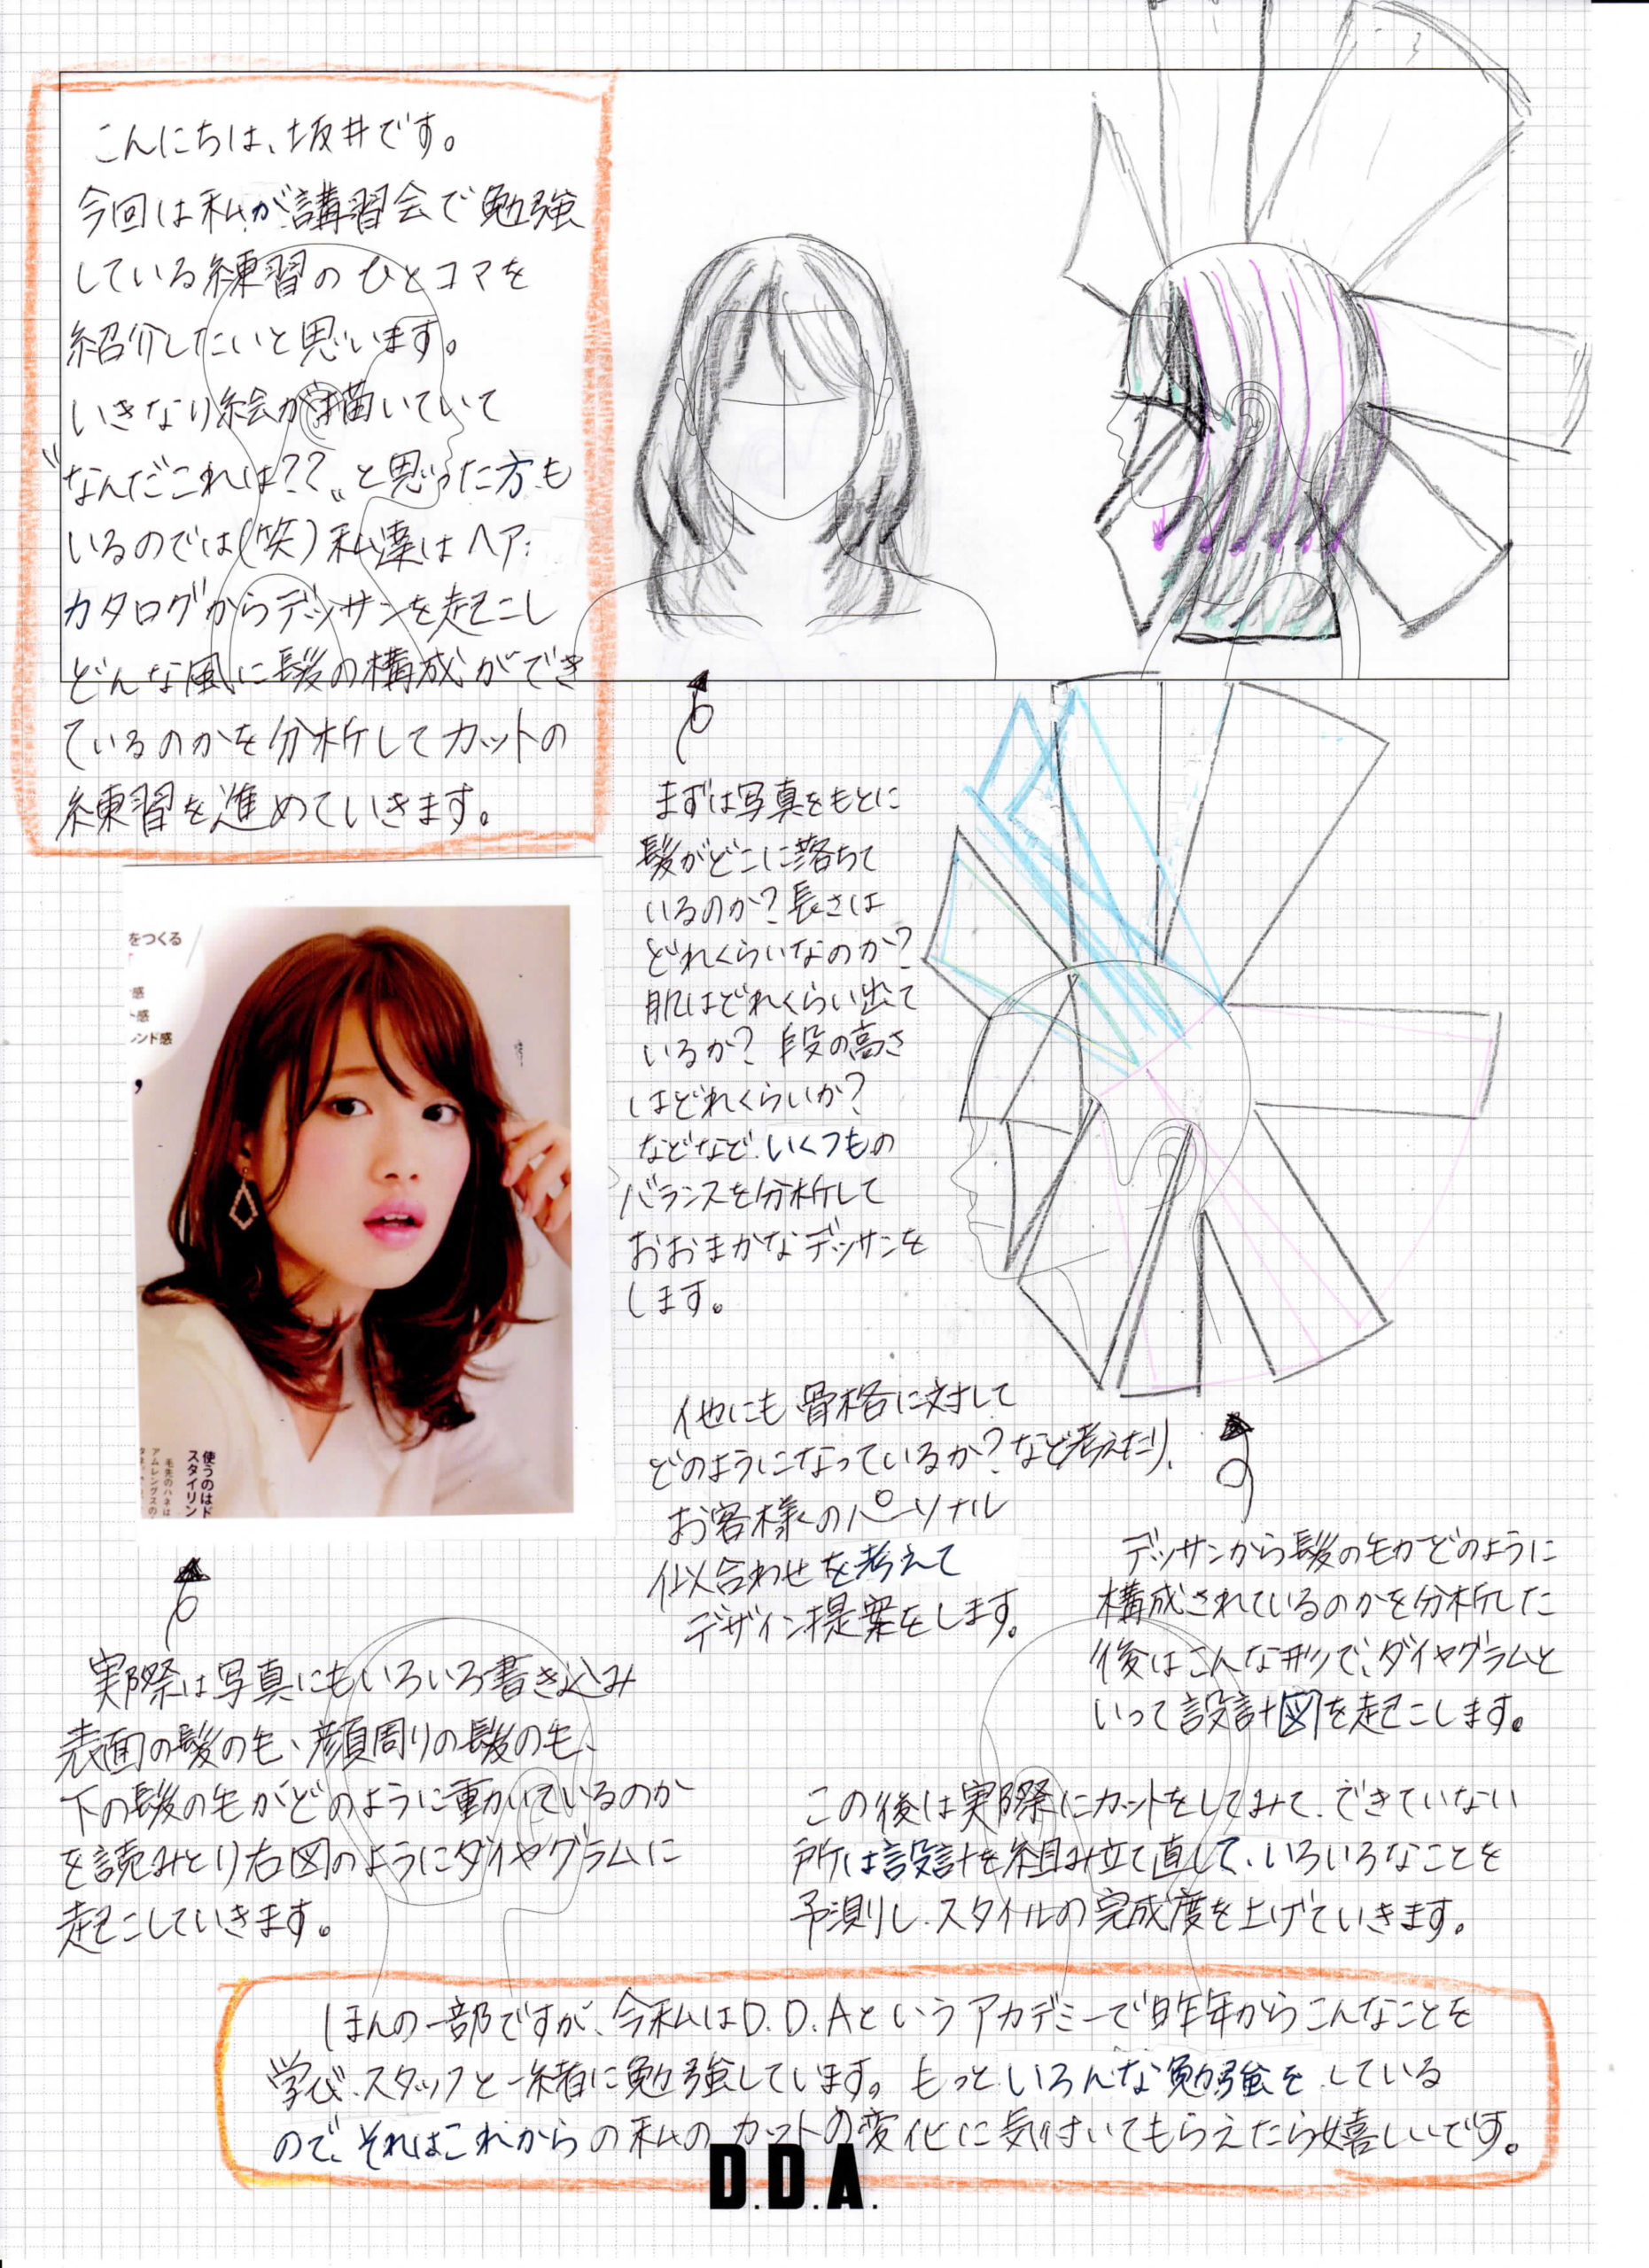 こんにちは、坂井です。
今回は私が講習会で勉強
している練習のひとコマを
紹介したいと思います。
いきなり絵が描いていて
"なんだこれは??"と思った方も
いるのでは(笑)私達はヘア
カタログからデッサンを起こし
どんな風に髪の構成ができ
ているのかを分析してカットの
練習を進めていきます。
まずは写真をもとに
髪がどこに落ちて
いるのか?長さは
どれくらいなのか?
肌はどれくらい出て
いるか?段の高さ
はどれくらいか?
などなど、いくつもの
バランスを分析して
おおまかなデッサンを
します。
をつくる
感
ト感
レンド感
使うのはド
スタイリン
毛先のハネは
アムレングスの
他にも骨格に対して
どのようになっているか?など考えたり、
お客様のパーソナル
似合わせを考えて
デザイン提案をします。
デッサンから髪の毛がどのように
構成されているのかを分析した
後はこんな形で、ダイヤグラムと
いって設計図を起こします。
実際は写真にもいろいろ書き込み
表面の髪の毛、顔周りの髪の毛、
下の髪の毛がどのように動いているのか
を読みとり右図のようにダイヤグラムに
起こしていきます。
この後は実際にカットをしてみて、できていない
所は設計を組み立て直して、いろいろなことを
予測し、スタイルの完成度を上げていきます。
ほんの一部ですが、今私はD.D.Aというアカデミーで昨年からこんなことを
学び、スタッフと一緒に勉強しています。もっといろんな勉強をしている
ので、それはこれからの私のカットの変化に気付いてもらえたら嬉しいです。
D.D.A.